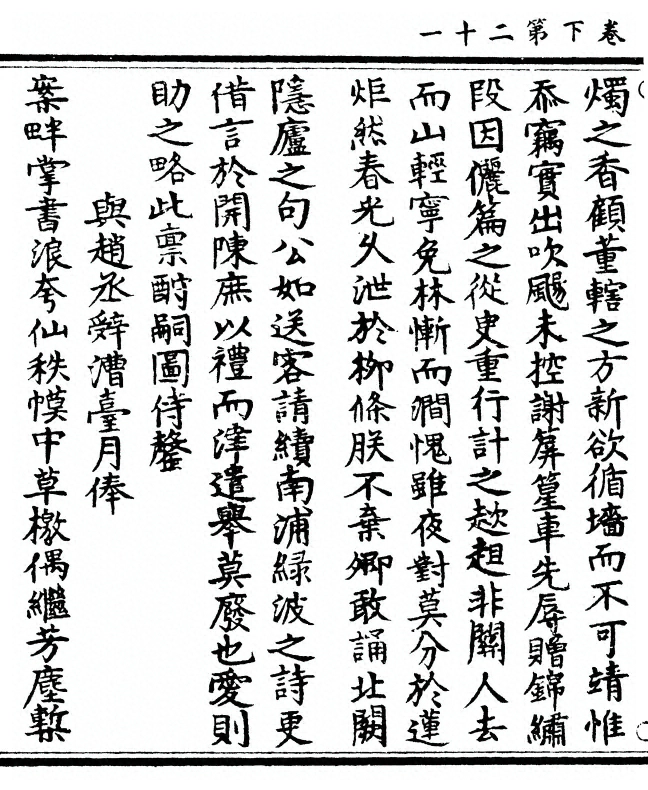 卷下第二十一
燭之香顧董轄之方新欲循墻而不可靖惟
忝竊實出吹颺未控謝箳篁車先辱贈錦繡
段因儷篇之從臾重行計之趑趄非關人去
而山輕寧免林慚而澗愧雖夜對莫分於蓮
炬然春光乆泄於柳條朕不棄卿敢誦北闕
隱廬之句公如送客請續南浦緑波之詩更
借言於開陳庶以禮而津遣舉莫廢也愛則
助之略此禀酧嗣圖侍𨤲
與趙丞辤漕臺月俸
案畔掌書浪夸仙秩幙中草檄偶繼芳塵蹔